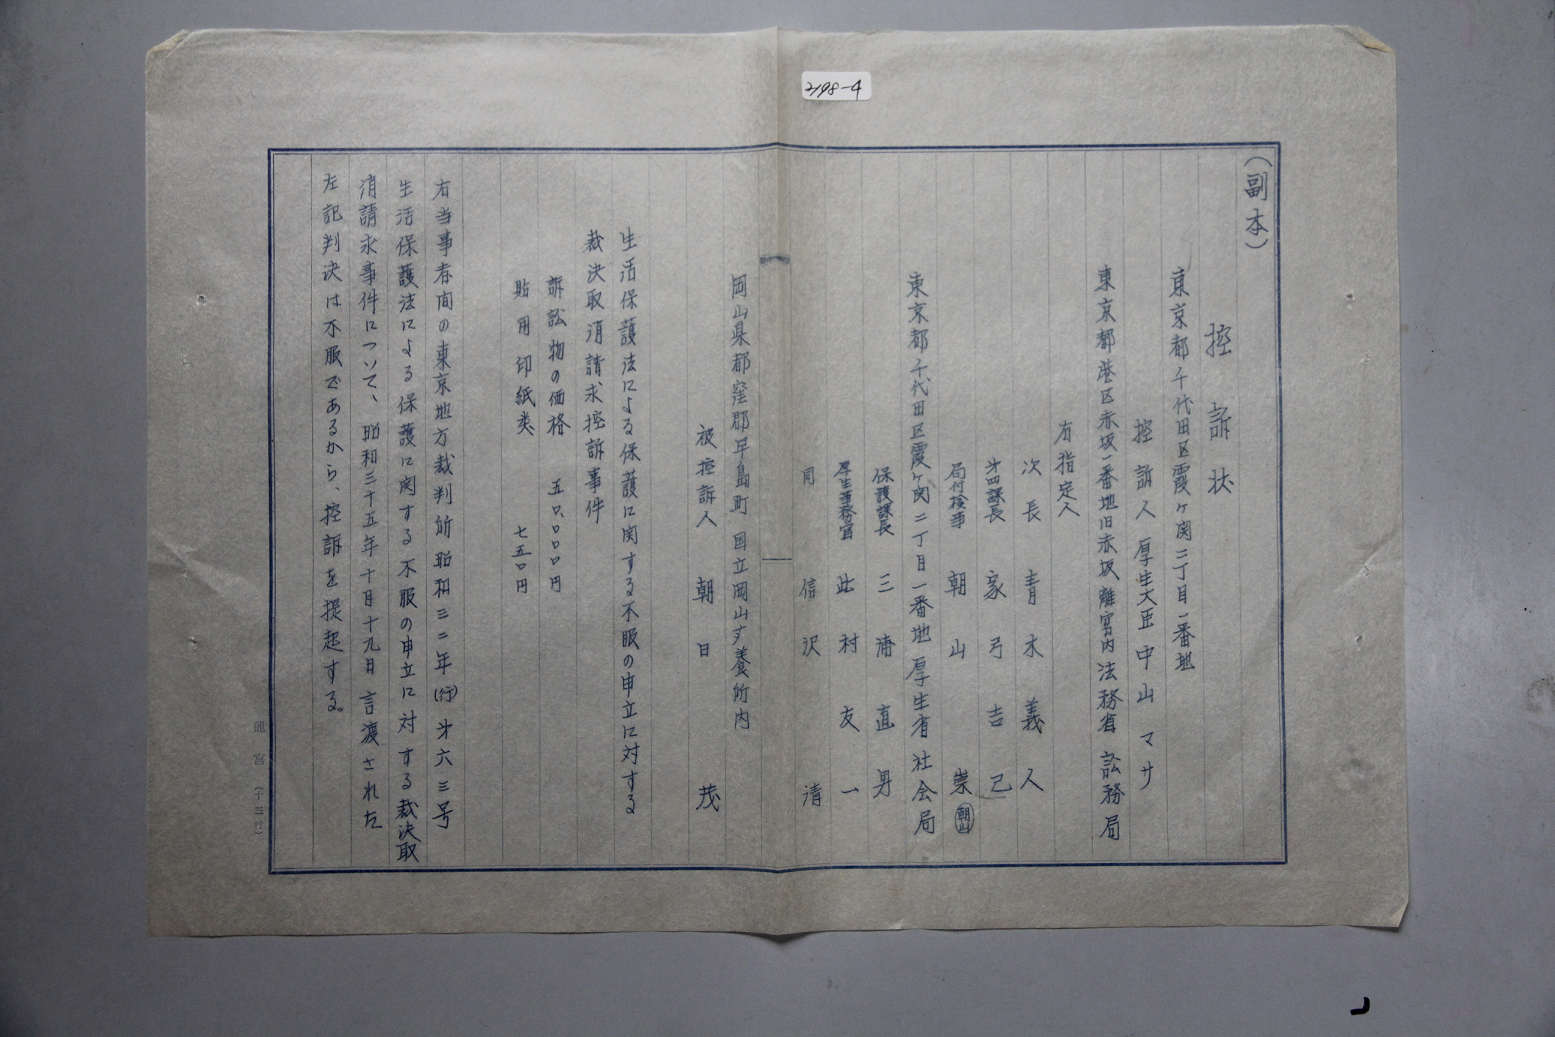 2198-4
（副本）
控訴状
東京都千代田区霞ヶ関二丁目一番地
控訴人 厚生大臣 中山マサ
東京都港区赤坂一番地旧赤坂離宮内法務省訟務局
右指定人
次長 青木義人
才四課長 家弓吉己
局付検事 朝山崇 朝山
東京都千代田区霞ヶ関二丁目一番地 厚生省社会局
保護課長 三浦直男
厚生事務官 此村友一
同 信沢清
岡山県都窪郡早島町 国立岡山療養所内
被控訴人 朝日茂
生活保護法による保護に関する不服の申立に対する
裁決取消請求控訴事件
訴訟物の価格 五〇、〇〇〇円
貼用印紙類 七五〇円
右当事者間の東京地方裁判所昭和三二年（行）才六三号
生活保護法による保護に関する不服の申立に対する裁決取
消請求事件について、昭和三十五年十月十九日言渡された
左記判決は不服であるから、控訴を提起する。